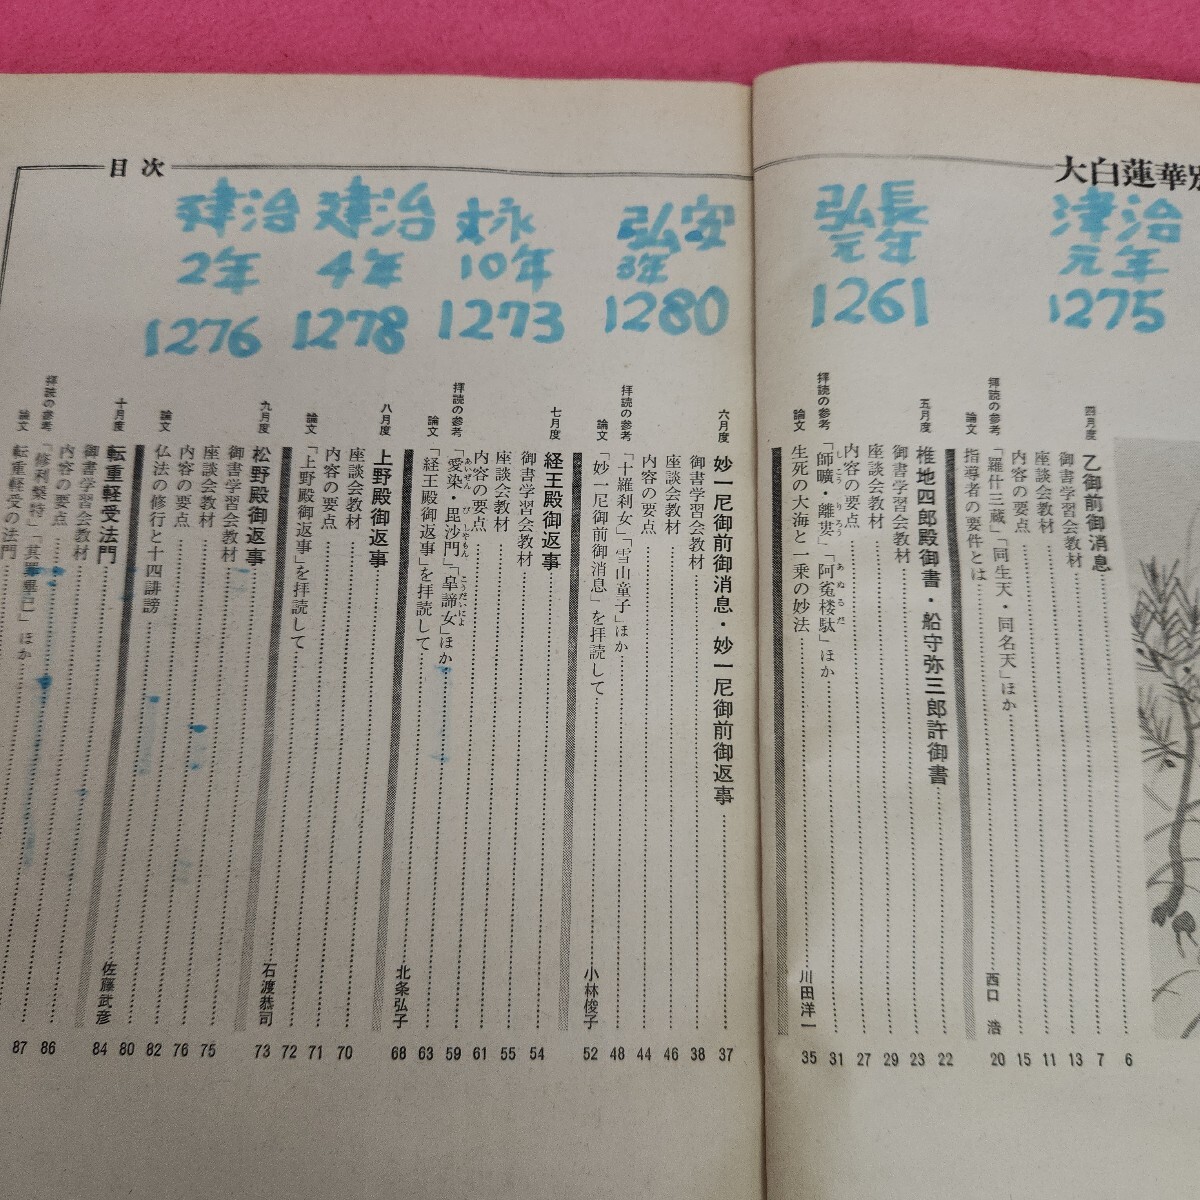 大白蓮華
目次
津治
元年
1275
弘長
元年
1261
弘安
3年
1280
文永
10年
1273
建治
4年
1278
建治
2年
1276
四月度 乙御前御消息 6
御書学習会教材 7
座談会教材 13
内容の要点 11
拝読の参考 「羅什三蔵」「同生天・同名天」ほか 15
論文 指導者の要件とは 西口 浩 20
五月度 椎地四郎殿御書・船守弥三郎許御書 22
御書学習会教材 23
座談会教材 29
内容の要点 27
拝読の参考 「師曠・離婁」「阿㝹楼駄」ほか 31
論文 生死の大海と一乗の妙法 川田洋一 35
六月度 妙一尼御前御消息・妙一尼御前御返事 37
御書学習会教材 38
座談会教材 46
内容の要点 44
拝読の参考 「十羅刹女」「雪山童子」ほか 48
論文 「妙一尼御前御消息」を拝読して 小林俊子 52
七月度 経王殿御返事 54
御書学習会教材 55
座談会教材 61
内容の要点 59
拝読の参考 「愛染・毘沙門」「皐諦女」ほか 63
論文 「経王殿御返事」を拝読して 北条弘子 68
八月度 上野殿御返事 70
座談会教材 71
内容の要点 72
論文 「上野殿御返事」を拝読して 石渡恭司 73
九月度 松野殿御返事 75
御書学習会教材 76
座談会教材 82
内容の要点 80
論文 仏法の修行と十四誹謗 佐藤武彦 84
十月度 転重軽受法門 86
御書学習会教材 87
内容の要点
拝読の参考 「修利槃特」「其罪畢已」ほか
論文 転重軽受の法門